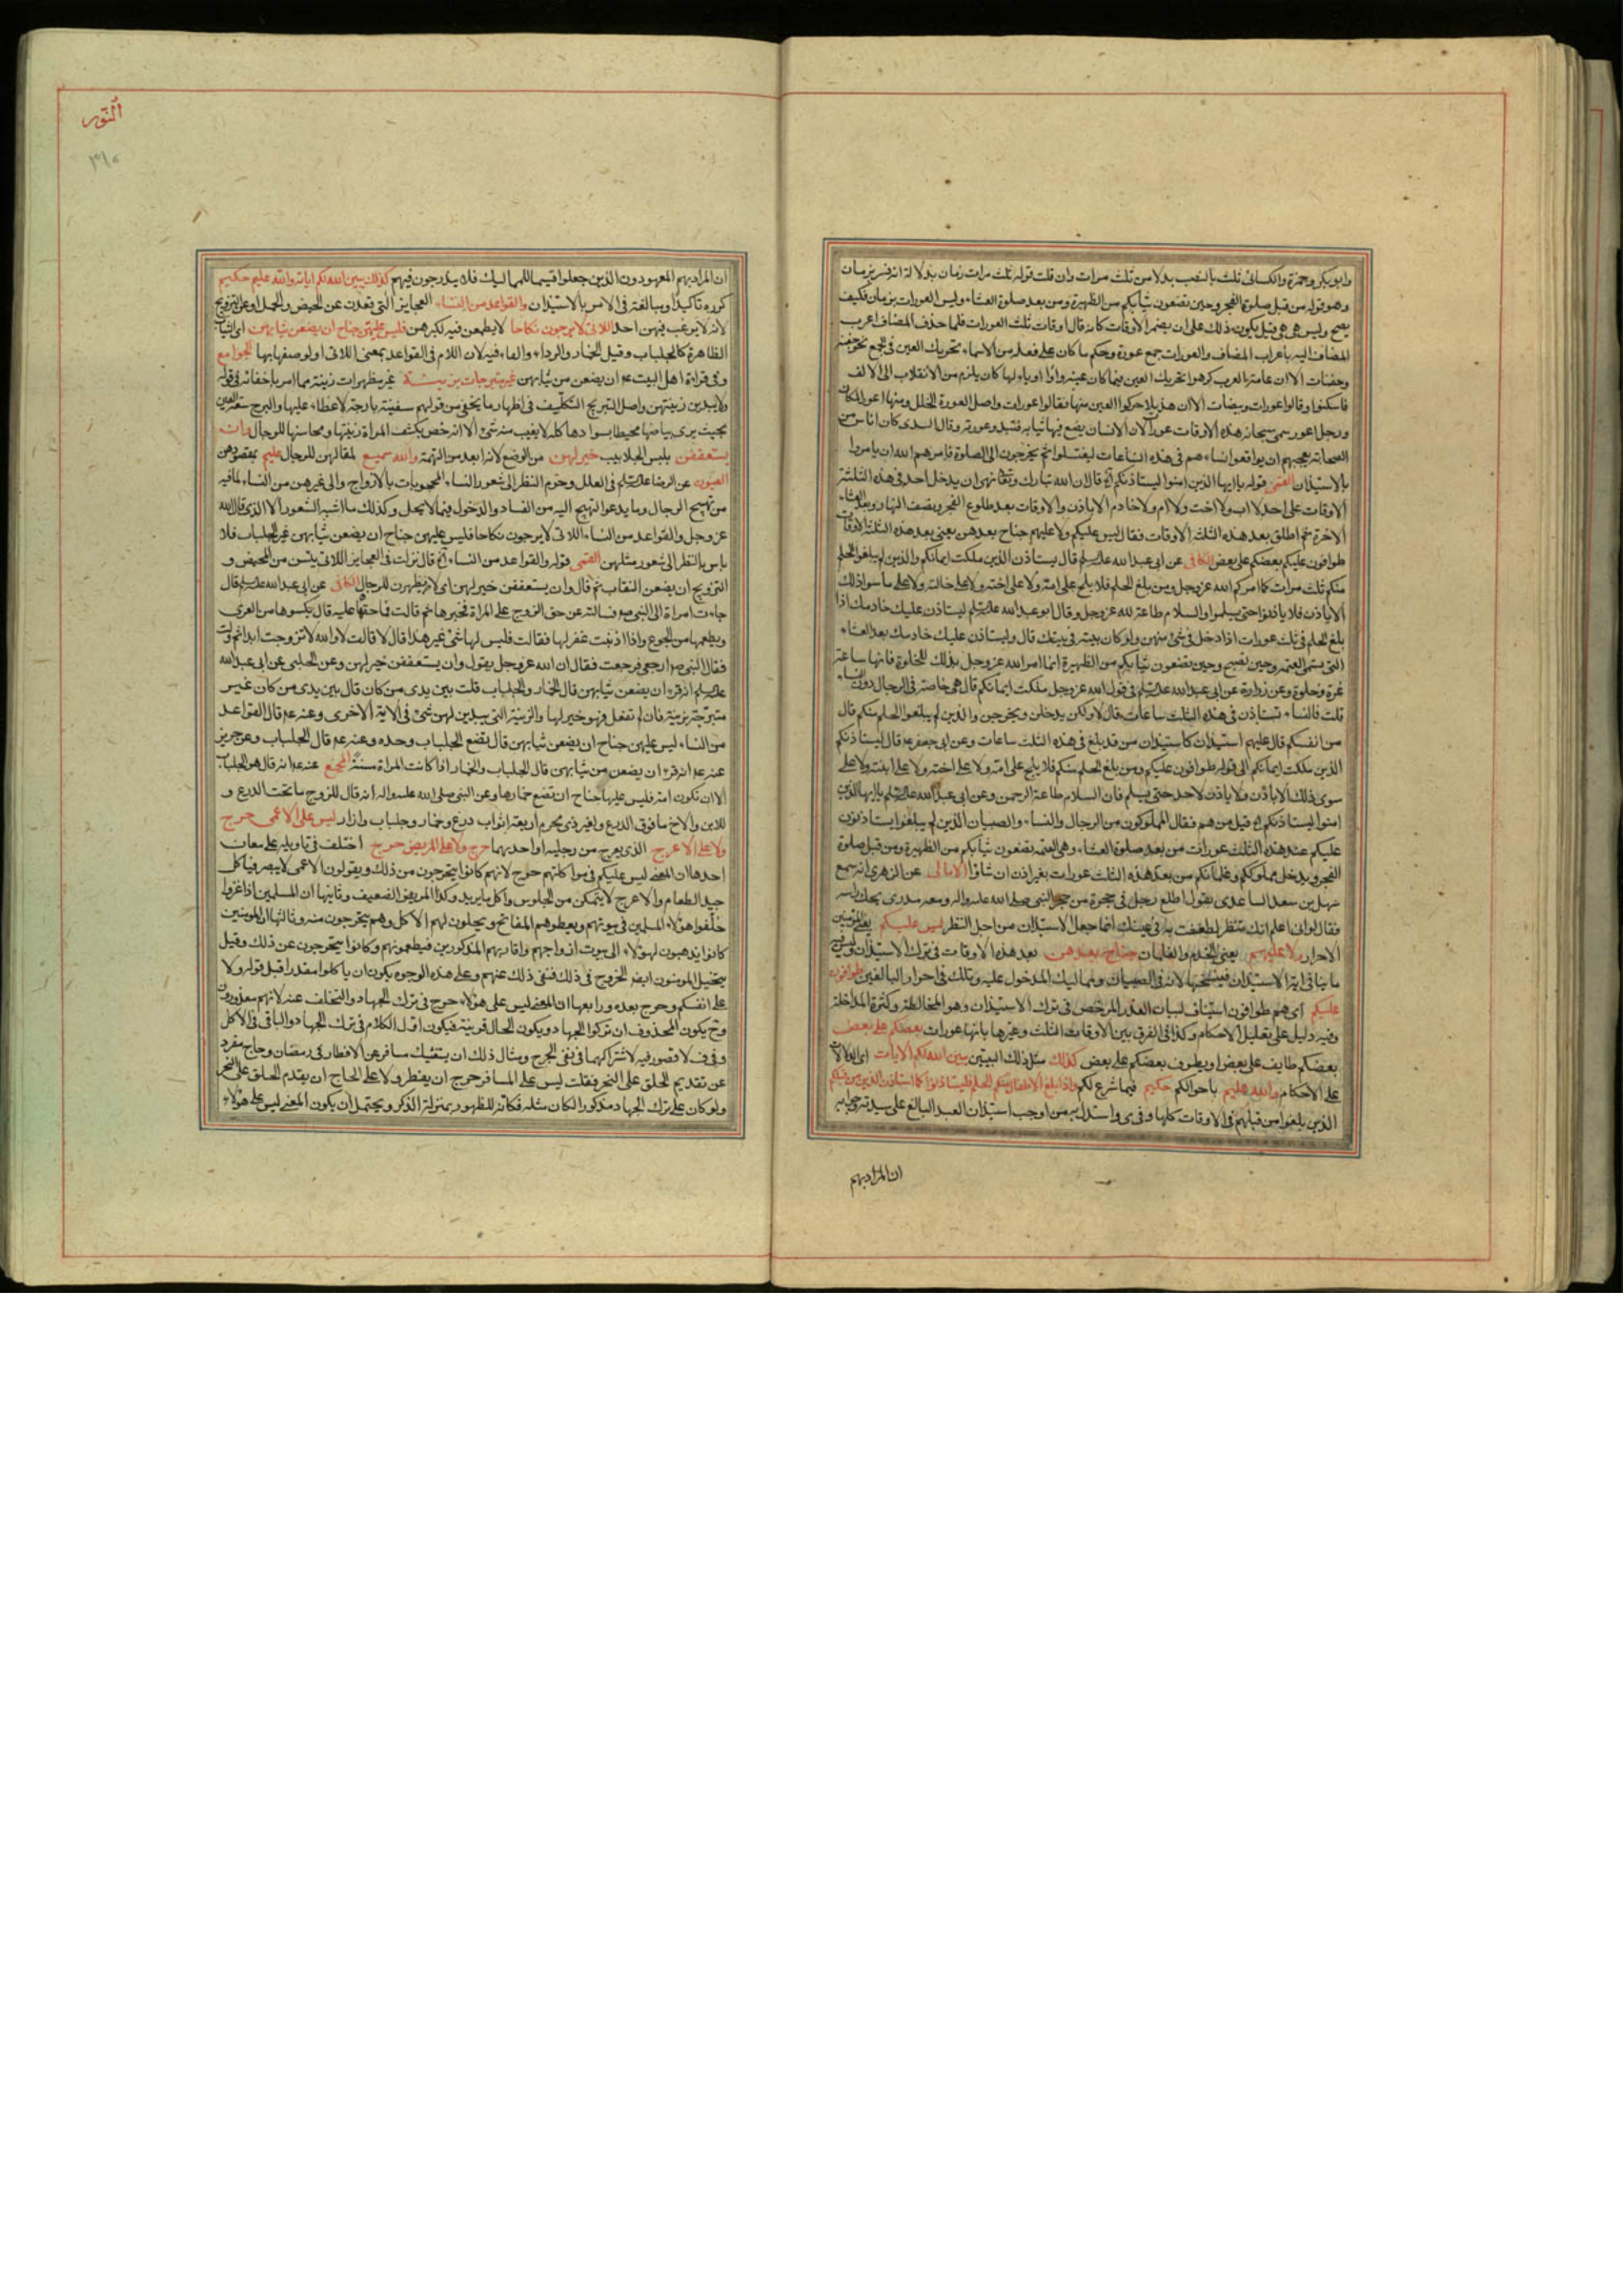 وابوبكر وحمزة والكسائى ثلث بالنصب بدلا من ثلث مرات وان قلت قوله ثلث مرات زمان بدلالة انه فسر بزمان
وهو قوله من قبل صلوة الفجر وحين تضعون ثيابكم من الظهيرة ومن بعد صلوة العشاء وليس العورات بزمان فكيف
يصح وليس هى هى قيل يكون ذلك على ان يضمر الاوقات كانه قال اوقات ثلث العورات فلما حذف المضاف اعرب
المضاف اليه باعراب المضاف والعورات جمع عورة وحكم ما كان على فعلة من الاسماء تحريك العين فى الجمع نحو جفنة
وجفنات الا ان عامة العرب كرهوا تحريك العين فيما كان عينه واوا او ياء لما كان يلزم من الانقلاب الى الالف
فاسكنوا وقالوا عورات وبيضات الا ان هذيلا حركوا العين منها فقالوا عورات واصل العورة الخلل ومنها اعور المكان
ورجل اعور سمى سبحانه هذه الاوقات عورات لان الانسان يضع فيها ثيابه فتبدو عورته وقال السدى كان اناس من
الصحابة يعجبهم ان يواقعوا نساءهم فى هذه الساعات ليغتسلوا ثم يخرجون الى الصلوة فامرهم الله ان يامروا
بالاستيذان القمى قوله يا ايها الذين امنوا ليستاذنكم الخ قال ان الله تبارك وتعالى نهى ان يدخل احد فى هذه الثلثة
الاوقات على احد لا اب ولا اخت ولا ام ولا خادم الا باذن والاوقات بعد طلوع الفجر ونصف النهار وبعد العشاء
الاخرة ثم اطلق بعد هذه الثلثة الاوقات فقال ليس عليكم ولا عليهم جناح بعدهن يعنى بعد هذه الثلثة الاوقات
طوافون عليكم بعضكم على بعض الكافى عن ابى عبد الله عليه السلم قال يستاذن الذين ملكت ايمانكم والذين لم يبلغوا الحلم
منكم ثلث مرات كما امركم الله عز وجل ومن بلغ الحلم فلا يلج على امه ولا على اخته ولا على خالته ولا على ما سوا ذلك
الا باذن فلا ياذنوا حتى يسلموا والسلام طاعة لله عز وجل وقال ابو عبد الله عليه السلم ليستاذن عليك خادمك اذا
بلغ الحلم فى ثلث عورات اذا دخل فى شئ منهن ولو كان بيته فى بيتك قال وليستاذن عليك خادمك بعد العشاء
التى يسمى العتمة وحين تصبح وحين تضعون ثيابكم من الظهيرة انما امر الله عز وجل بذلك للخلوة فانها ساعة
غرة وخلوة وعن زرارة عن ابى عبد الله عليه السلم فى قول الله عز وجل ملكت ايمانكم قال هى خاصة فى الرجال دون النساء
قلت فالنساء تستاذن فى هذه الثلث ساعات قال لا ولكن يدخلن ويخرجن والذين لم يبلغوا الحلم منكم قال
من انفسكم قال عليهم استيذان كاستيذان من قد بلغ فى هذه الثلث ساعات وعن ابى جعفر عه قال ليستاذنكم
الذين ملكت ايمانكم الى قوله طوافون عليكم ومن بلغ الحلم منكم فلا يلج على امه ولا على اخته ولا على ابنته ولا على
سوى ذلك الا باذن ولا ياذن لاحد حتى يسلم فان السلام طاعة الرحمن وعن ابى عبد الله عليه السلم يا ايها الذين
امنوا ليستاذنكم الخ قيل من هم فقال المملوكون من الرجال والنساء والصبيان الذين لم يبلغوا يستاذنون
عليكم عند هذه الثلث عورات من بعد صلوة العشاء وهى العتمة تضعون ثيابكم من الظهيرة ومن قبل صلوة
الفجر ويدخل مملوككم وغلمانكم من بعد هذه الثلث عورات بغير اذن ان شاؤا الامالى عن الزهرى انه سمع
سهل بن سعد الساعدى يقول اطلع رجل فى حجرة من حجر النبى صلى الله عليه واله ومعه مدرى يحك راسه
فقال لو انى اعلم انك تنظر لطعنت به فى عينك انما جعل الاستيذان من اجل النظر ليس عليكم يعنى المؤمنين
الاحرار ولا عليهم يعنى الخدم والغلمان جناح بعدهن بعد هذه الاوقات فى ترك الاستيذان وليس فيه
ما ينافى اية الاستيذان فينسخها لانه فى الصبيان ومماليك المدخول عليه وتلك فى احرار البالغين طوافون
عليكم اى هم طوافون استيناف لبيان العذر المرخص فى ترك الاستيذان وهو المخالطة وكثرة المداخلة
وفيه دليل على تعليل الاحكام وكذا فى الفرق بين الاوقات الثلث وغيرها بانها عورات بعضكم على بعض
بعضكم طايف على بعض او يطوف بعضكم على بعض كذلك مثل ذلك التبيين يبين الله لكم الايات اى الدلالات
على الاحكام والله عليم باحوالكم حكيم فيما شرع لكم واذا بلغ الاطفال منكم الحلم فليستاذنوا كما استاذن الذين من قبلهم
الذين بلغوا من قبلهم فى الاوقات كلها وفى ى واستدل به من اوجب استيذان العبد البالغ على سيدته وجوابه
ان المراد بهم
النور
ان المراد بهم المعهودون الذين جعلوا قسيما للمماليك فلا يندرجون فيهم كذلك يبين الله لكم اياته والله عليم حكيم
كرره تاكيدا ومبالغة فى الامر بالاستيذان والقواعد من النساء العجايز التى قعدت عن الحيض والحمل او عن التزويج
لانه لا يرغب فيهن احد اللاتى لا يرجون نكاحا لا يطمعن فيه لكبرهن فليس عليهن جناح ان يضعن ثيابهن اى الثياب
الظاهرة كالجلباب وقيل الخمار والرداء والفاء فيه لان اللام فى القواعد بمعنى اللاتى او لوصفها بها الجوامع
وفى قراءة اهل البيت عه ان يضعن من ثيابهن غير متبرجات بزينة غير مظهرات زينة مما امر باخفائه فى قوله
ولا يبدين زينتهن واصل التبرج التكلف فى اظهار ما يخفى من قولهم سفينة بارجة لا غطاء عليها والبرج سعة العين
بحيث يرى بياضها محيطا بسوادها كله لا يغيب منه شئ الا انه خص بكشف المراة زينتها ومحاسنها للرجال وان
يستعففن بلبس الجلابيب خير لهن من الوضع لانه ابعد من التهمة والله سميع لمقالهن للرجال عليم بمقصودهن
العيون عن الرضا عليه السلم فى العلل وحرم النظر الى شعور النساء المحجوبات بالازواج والى غيرهن من النساء لما فيه
من تهييج الرجال وما يدعو التهييج اليه من الفساد والدخول فيما لا يحل وكذلك ما اشبه الشعور الا الذى قال الله
عز وجل والقواعد من النساء اللاتى لا يرجون نكاحا فليس عليهن جناح ان يضعن ثيابهن غير الجلباب فلا
باس بالنظر الى شعور مثلهن القمى قوله والقواعد من النساء الخ قال نزلت فى العجايز اللاتى يئسن من المحيض و
التزويج ان يضعن النقاب ثم قال وان يستعففن خير لهن اى لا يظهرن للرجال الكافى عن ابى عبد الله عليه السلم قال
جاءت امراة الى النبى ص فسالته عن حق الزوج على المراة فخبرها ثم قالت فما حقها عليه قال يكسوها من العرى
ويطعمها من الجوع واذا اذنبت غفر لها فقالت فليس لها شئ غير هذا قال لا قالت لا والله لا تزوجت ابدا ثم ولت
فقال النبى ص ارجعى فرجعت فقال ان الله عز وجل يقول وان يستعففن خير لهن وعن الحلبى عن ابى عبد الله
عليه السلم انه قرء ان يضعن ثيابهن قال الخمار والجلباب قلت بين يدى من كان قال بين يدى من كان غير
متبرجة بزينة فان لم تفعل فهو خير لها والزينة التى يبدين لهن شئ فى الاية الاخرى وعنه عه قال القواعد
من النساء ليس عليهن جناح ان يضعن ثيابهن قال تضع الجلباب وحده وعنه عه قال الجلباب وعن حريز
عنه عه انه قرء ان يضعن من ثيابهن قال الجلباب والخمار اذا كانت المراة مسنة المجمع عنه عه انه قال هو الجلباب
الا ان تكون امة فليس عليها جناح ان تضع خمارها وعن النبى صلى الله عليه واله انه قال للزوج ما تحت الدرع و
للابن والاخ ما فوق الدرع ولغير ذى محرم اربعة اثواب درع وخمار وجلباب وازار ليس على الاعمى حرج
ولا على الاعرج الذى يعرج من رجليه او احديهما حرج ولا على المريض حرج اختلف فى تاويله على معان
احدها ان المعنى ليس عليكم فى مواكلتهم حرج لانهم كانوا يتحرجون من ذلك ويقولون الاعمى لا يبصر فياكل
جيد الطعام والاعرج لا يتمكن من الجلوس واكل ما يريد وكذا المريض الضعيف وثانيها ان المسلمين اذا غزوا
خلفوا هؤلاء المسلمين فى بيوتهم ويعطوهم المفاتح ويحلون لهم الاكل وهم يتحرجون منه وثالثها ان المؤمنين
كانوا يذهبون لهؤلاء الى بيوت ازواجهم واقاربهم المذكورين فيطعمونهم وكانوا يتحرجون عن ذلك وقيل
يتخيل المومنون ايضا الحرج فى ذلك فنفى ذلك عنهم وعلى هذه الوجوه يكون ان ياكلوا مقدرا قبل قوله ولا
على انفسكم وحرج بعده ورابعها ان المعنى ليس على هؤلاء حرج فى ترك الجهاد والتخلف عنه لانهم معذورون
وح يكون المحذوف ان تركوا الجهاد ويكون الحال قرينة فيكون اول الكلام فى ترك الجهاد والباقى فى الاكل
وفى ف لا قصور فيه لاشتراكهما فى نفى الحرج ومثال ذلك ان يستفتيك مسافر عن الافطار فى رمضان وحاج مفرد
عن تقديم الحلق على النحر فقلت ليس على المسافر حرج ان يفطر ولا على الحاج ان يقدم الحلق على النحر
ولو كان على ترك الجهاد مذكورا لكان مثله فكانه للظهور بمنزلة الذكر ويحتمل ان يكون المعنى ليس على هؤلاء